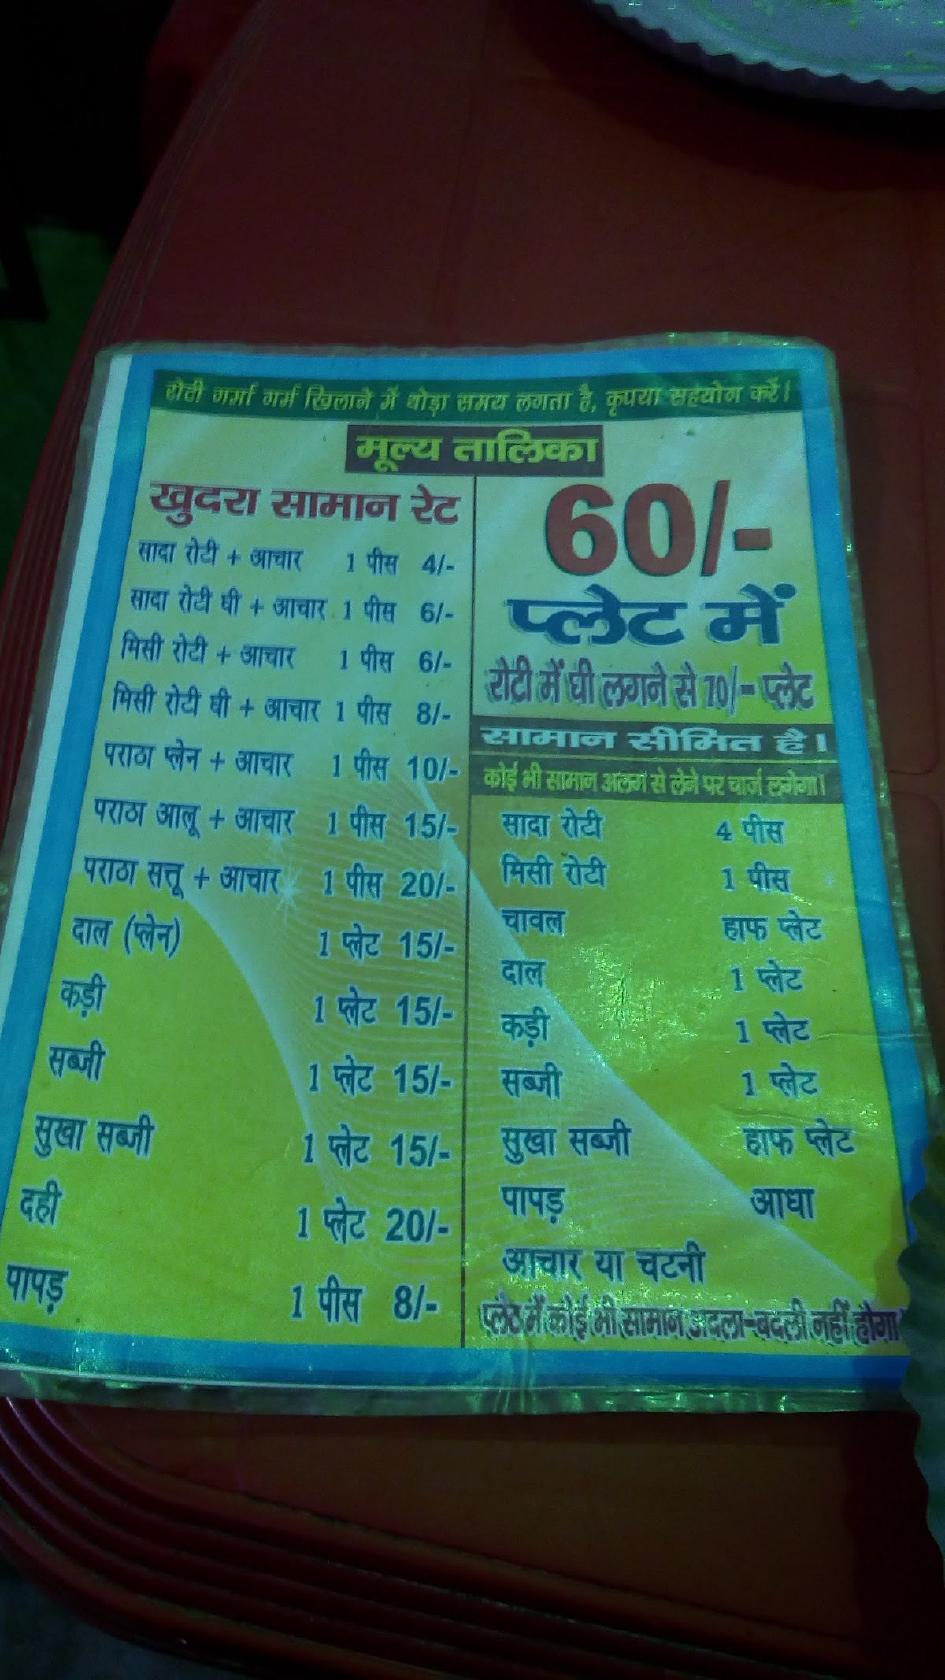 रोटी गर्मा गर्म खिलाने में थोड़ा समय लगता है, कृपया सहयोग करें।
मूल्य तालिका
खुदरा सामान रेट
सादा रोटी + आचार 1 पीस 4/-
सादा रोटी घी + आचार 1 पीस 6/-
मिसी रोटी + आचार 1 पीस 6/-
मिसी रोटी घी + आचार 1 पीस 8/-
पराठा प्लेन + आचार 1 पीस 10/-
पराठा आलू + आचार 1 पीस 15/-
पराठा सत्तू + आचार 1 पीस 20/-
दाल (प्लेन) 1 प्लेट 15/-
कड़ी 1 प्लेट 15/-
सब्जी 1 प्लेट 15/-
सुखा सब्जी 1 प्लेट 15/-
दही 1 प्लेट 20/-
पापड़ 1 पीस 8/-
60/-
प्लेट में
रोटी में घी लगने से 70/- प्लेट
सामान सीमित है।
कोई भी सामान अलग से लेने पर चार्ज लगेगा।
सादा रोटी 4 पीस
मिसी रोटी 1 पीस
चावल हाफ प्लेट
दाल 1 प्लेट
कड़ी 1 प्लेट
सब्जी 1 प्लेट
सुखा सब्जी हाफ प्लेट
पापड़ आधा
आचार या चटनी
प्लेट में कोई भी सामान अदला-बदली नहीं होगा